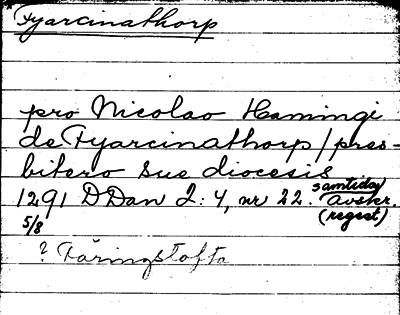 Fyarcinathorp
pro Nicolao Hamingi
de Fyarcinathorp / pres-
bitero sue diocesis
1291 DDan 2: 4, nr 22. samtida Avskr.
5/8 (regest)
? Färingstofta